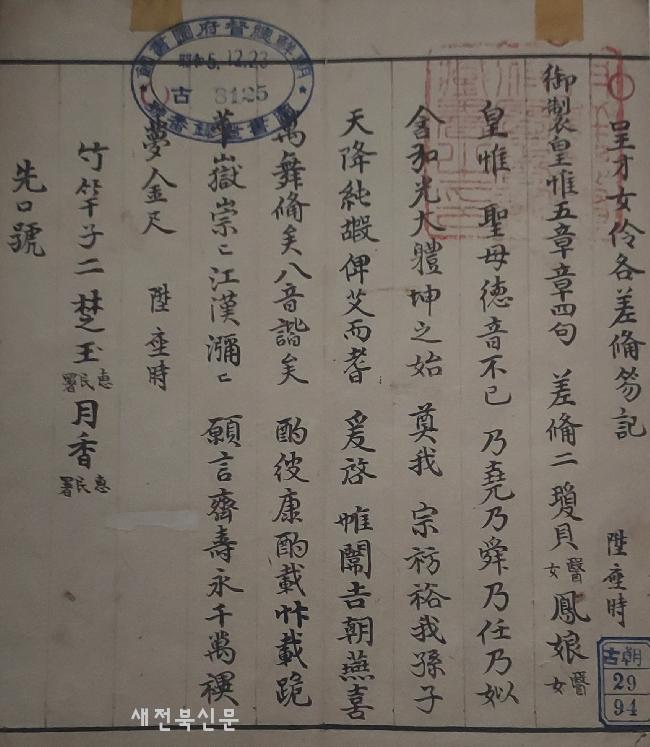 呈才女伶各差備笏記　陞座時
御製皇惟五章章四句　差備二瓊貝醫女鳳娘醫女
皇惟　聖母德音不已　乃堯乃舜乃任乃姒
含弘光大體坤之始　奠我　宗祊裕我孫子
天降純嘏俾艾而耆　爰啓　帷闈吉朝燕喜
萬舞脩矣八音諧矣　酌彼康酌載忭載跪
華嶽崇〻江漢瀰〻　願言齊壽永千萬禩
夢金尺　陞座時
竹竿子二楚玉惠民署月香惠民署
先口號
朝鮮總督府圖書館
昭和5.12.23
古 3125
圖書登錄番號
朝
古
29
94
새전북신문